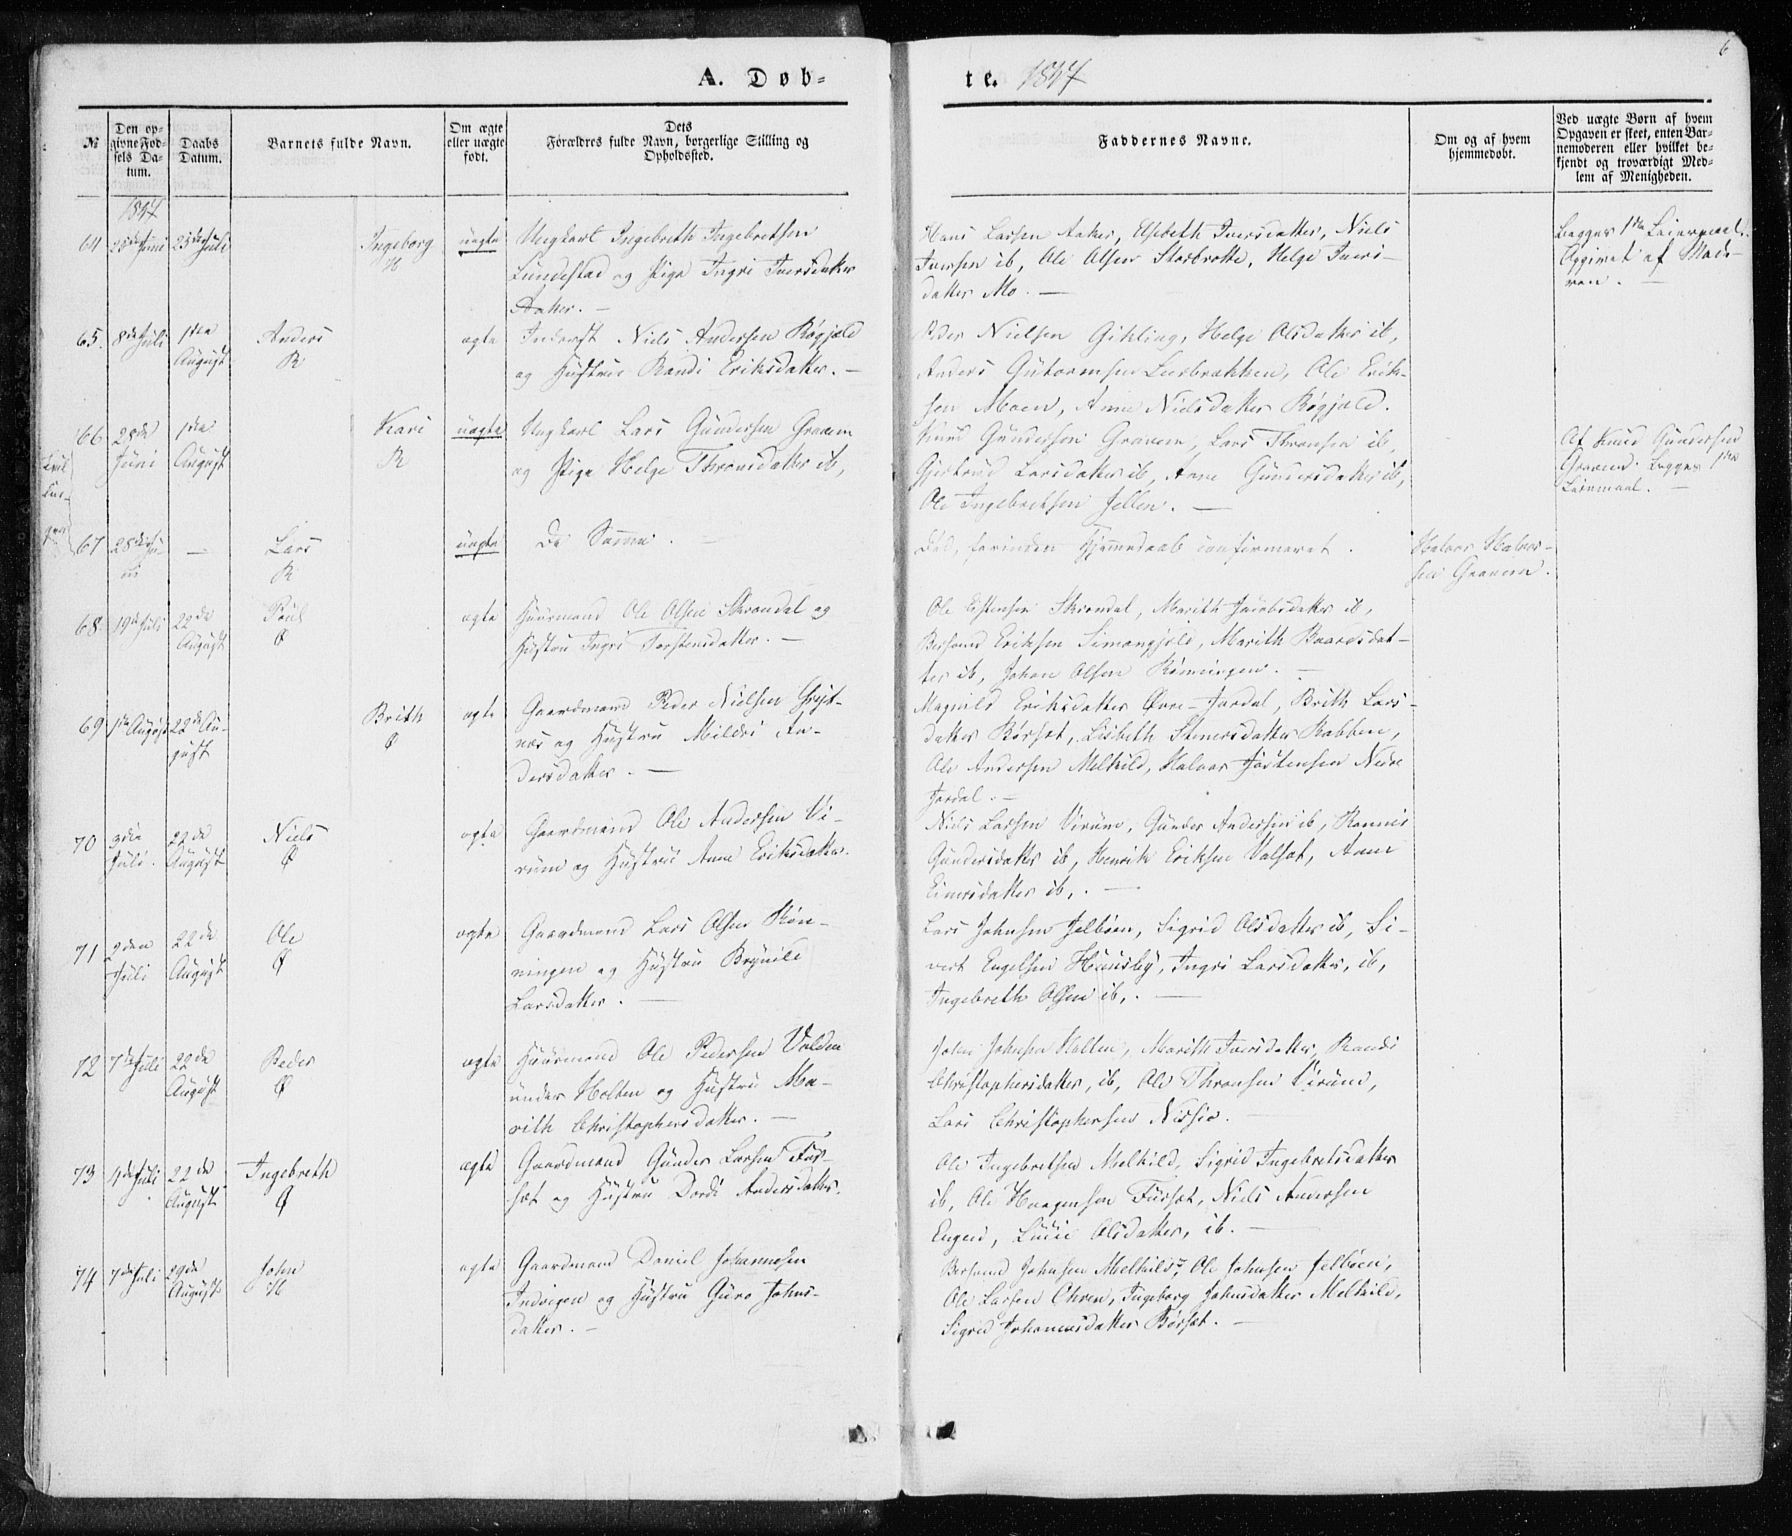 6
A. Døb-
te. 1847
№
Den op-
givne Fød-
sels Da-
tum.
Daabs
Datum.
Barnets fulde Navn.
Om ægte
eller uægte
født.
Dets
Forældres fulde Navn, borgerlige Stilling og
Opholdssted.
Faddernes Navne.
Om og af hvem
hjemmedøbt.
Ved uægte Børn af hvem
Opgaven er skeet, enten Bar-
nemoderen eller hvilket be-
kjendt og troværdigt Med-
lem af Menigheden.
1847
64 28de Juni 25de Juli Ingeborg uægte Ungkarl Ingebreth Ingebrethsen
H
Lundestad og Pige Ingri Iversdatter
Aaker. —
Hans Larsen Aaker, Elsebeth Iversdatter, Niels
Iversen ib, Ole Olsen Storbrotte, Helge Ivers-
datter Mo. —
Begges 1ste Leiermaal.
Opgivet af Mode-
ren. —
65. 8de Juli 1ste August Anders ægte Inderst Niels Andersen Røgjeld
R
og Hustru Randi Eriksdatter. —
Peder Nielsen Gikling, Helge Olsdatter ib,
Anders Gutormsen Leerbrækken, Ole Erik-
sen Moen, Anne Nielsdatter Røgjeld.
66 28de Juni 1ste August Kari uægte Ungkarl Lars Gundersen Gravem
R
og Pige Helge Thronsdatter ib,
Knud Gundersen Gravem, Lars Thronsen ib,
Gjertrud Larsdatter ib, Anne Gundersdatter ib,
Ole Ingebrethsen Jellen. —
Af Knud Gundersen
Gravem. Begges 1ste
Leiermaal. —
67 28de Ju-
ni — Lars uægte De Samme. —
R
Død, forinden Hjemmedaab confirmeret.
Halvor Halvor-
sen Gravem.
68. 19de Juli 22de August Poul ægte Huusmand Ole Olsen Skrondal og
Ø
Hustru Ingri Torstensdatter. —
Ole Estensen Skrondal, Marith Jacobsdatter ib,
Bersvend Eriksen Simongjeld, Marith Baardsdat-
ter ib, Johan Olsen Rønningen. —
69 1ste August 22de Au-
gust Brith ægte Gaardmand Peder Nielsen
Ø
og Hustru Mildri An-
dersdatter. —
Magnild Eriksdatter Øvre-Jordal, Brith Lars-
datter Børset, Lisbeth Stenersdatter Rabben,
Ole Andersen Melkild, Halvor Jostensen Nedre
Jordal. —
70 3die Juli. 22de August Niels ægte Gaardmand Ole Andersen Vi-
Ø
rum og Hustru Anne Eriksdatter.
Niels Larsen Virum, Gunder Andersen ib, Rannei
Gundersdatter ib, Henrik Eriksen Valset, Anne
Einersdatter ib,. —
71 2den Juli 22de August Ole ægte Gaardmand Lars Olsen Røn-
Ø
ningen og Hustru Brynild
Larsdatter. —
Lars Johnsen Jelbøen, Sigrid Olsdatter ib, Si-
vert Engelsen Huusby, Ingri Larsdatter, ib,
Ingebreth Olsen ib,. —
72 7de Juli 22de August Peder ægte Huusmand Ole Pedersen Volden
Ø
under Holten og Hustru Ma-
rith Christophersdatter. —
John Johnsen Holten, Marith Iversdatter, Randi
Christophersdatter, ib, Ole Thronsen Virum,
Lars Christophersen Nissio. —
73 4de Juli 22de August Ingebreth ægte Gaardmand Gunder Larsen Fur-
Ø
set og Hustru Dordi Andersdatter.
Ole Ingebrethsen Melkild, Sigrid Ingebrethsdatter
ib, Ole Haagensen Furset, Niels Andersen
Engen, Lucie Olsdatter, ib. —
74 7de Juli 29de August John ægte Gaardmand Daniel Johannesen
H
Indvigen og Hustru Guro Johns-
datter. —
Bersvend Johnsen Melkild, Ole Johnsen Jelbøen,
Ole Larsen Ohren, Ingeborg Johnsdatter Melkild,
Sigrid Johannesdatter Børset. —